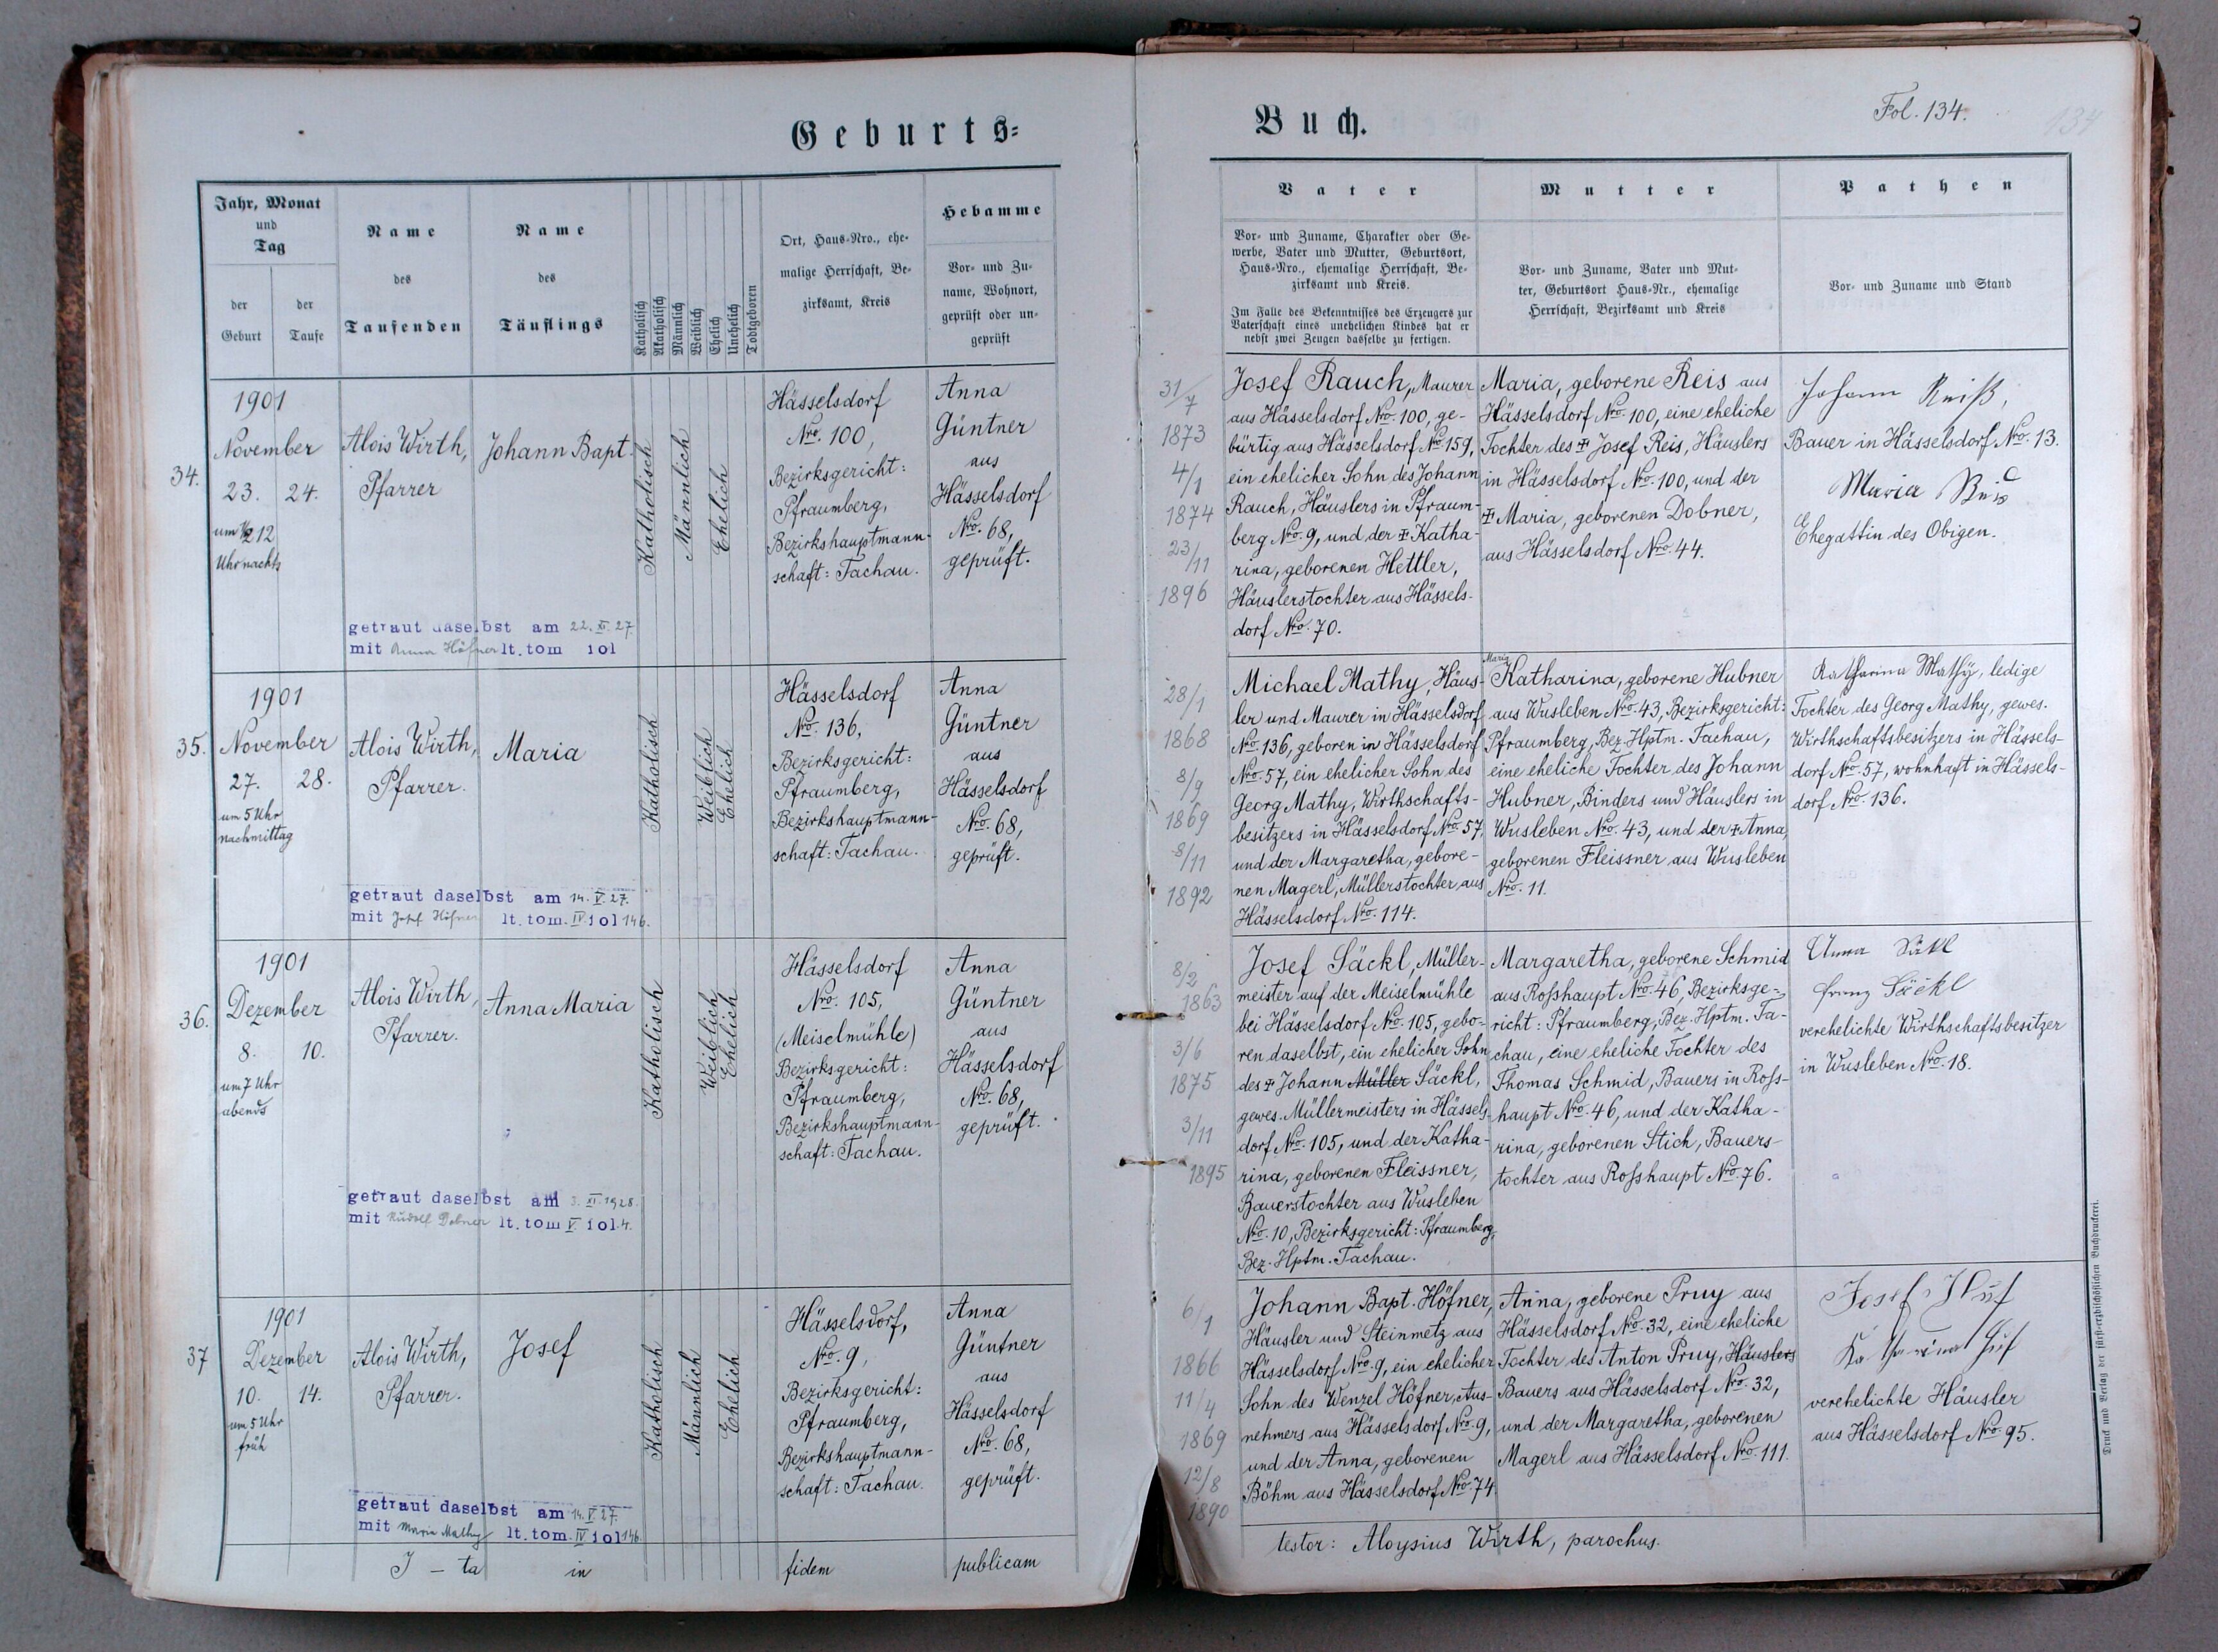 Geburts-
Buch.
Fol. 134.
134
Jahr, Monat
und
Tag
der
Geburt
der
Taufe
Name
des
Taufenden
Name
des
Täuflings
Katholisch
Akatholisch
Männlich
Weiblich
Ehelich
Unehelich
Todtgeboren
Ort, Haus-Nro., ehe-
malige Herrschaft, Be-
zirksamt, Kreis
Hebamme
Vor- und Zu-
name, Wohnort,
geprüft oder un-
geprüft
Vater
Vor- und Zuname, Charakter oder Ge-
werbe, Vater und Mutter, Geburtsort,
Haus-Nro., ehemalige Herrschaft, Be-
zirksamt und Kreis.
Im Falle des Bekenntnisses des Erzeugers zur
Vaterschaft eines unehelichen Kindes hat er
nebst zwei Zeugen dasselbe zu fertigen.
Mutter
Vor- und Zuname, Vater und Mut-
ter, Geburtsort Haus-Nr., ehemalige
Herrschaft, Bezirksamt und Kreis
Pathen
Vor- und Zuname und Stand
34.
1901
November
23. 24.
um 1/2 12
Uhr nachts
Alois Wirth,
Pfarrer
Johann Bapt.
Katholisch
Männlich
Ehelich
Hässelsdorf
Nro. 100,
Bezirksgericht:
Pfraumberg,
Bezirkshauptmann-
schaft: Tachau.
Anna
Güntner
aus
Hässelsdorf
Nro. 68,
geprüft.
getraut daselbst am 22. XI. 27.
mit Anna Höfner lt. tom fol
31/7
1873
4/1
1874
23/11
1896
Josef Rauch, Maurer
aus Hässelsdorf Nro. 100, ge-
bürtig aus Hässelsdorf No 159,
ein ehelicher Sohn des Johann
Rauch, Häuslers in Pfraum-
berg Nro. 9, und der ✝ Katha-
rina, geborenen Hettler,
Häuslerstochter aus Hässels-
dorf Nro. 70.
Maria, geborene Reis aus
Hässelsdorf Nro. 100, eine eheliche
Tochter des ✝ Josef Reis, Häuslers
in Hässelsdorf Nro. 100, und der
✝ Maria, geborenen Dobner,
aus Hässelsdorf Nro. 44.
Johann Reiß,
Bauer in Hässelsdorf Nro. 13.
Maria Reis
Ehegattin des Obigen.
35.
1901
November
27. 28.
um 5 Uhr
nachmittag
Alois Wirth,
Pfarrer.
Maria
Katholisch
Weiblich
Ehelich
Hässelsdorf
Nro. 136,
Bezirksgericht:
Pfraumberg,
Bezirkshauptmann-
schaft: Tachau.
Anna
Güntner
aus
Hässelsdorf
Nro. 68,
geprüft.
getraut daselbst am 14. V. 27.
mit Josef Höfner lt. tom. IV. fol 146.
28/1
1868
8/9
1869
8/11
1892
Michael Mathy, Häus-
ler und Maurer in Hässelsdorf
Nro. 136, geboren in Hässelsdorf
Nro. 57, ein ehelicher Sohn des
Georg Mathy, Wirthschafts-
besitzers in Hässelsdorf Nro. 57,
und der Margaretha, gebore-
nen Magerl, Müllerstochter aus
Hässelsdorf Nro. 114.
Maria
Katharina, geborene Hubner
aus Wusleben Nro. 43, Bezirksgericht:
Pfraumberg, Bez. Hptm. Tachau,
eine eheliche Tochter des Johann
Hubner, Binders und Häuslers in
Wusleben Nro. 43, und der ✝ Anna,
geborenen Fleissner aus Wusleben
Nro. 11.
Katharina Mathÿ, ledige
Tochter des Georg Mathy, gewes.
Wirthschaftsbesitzers in Hässels-
dorf Nro. 57, wohnhaft in Hässels-
dorf Nro. 136.
36.
1901
Dezember
8. 10.
um 7 Uhr
abends
Alois Wirth,
Pfarrer.
Anna Maria
Katholisch
Weiblich
Ehelich
Hässelsdorf
Nro. 105,
(Meiselmühle)
Bezirksgericht:
Pfraumberg,
Bezirkshauptmann-
schaft: Tachau.
Anna
Güntner
aus
Hässelsdorf
Nro. 68,
geprüft.
getraut daselbst am 3. XI. 1928.
mit Rudolf Dobner lt. tom V. fol. 4.
8/2
1863
3/6
1875
3/11
1895
Josef Säckl, Müller-
meister auf der Meiselmühle
bei Hässelsdorf Nro. 105, gebo-
ren daselbst, ein ehelicher Sohn
des ✝ Johann Müller Säckl,
gewes. Müllermeisters in Hässels-
dorf Nro. 105, und der Katha-
rina, geborenen Fleissner,
Bauerstochter aus Wusleben
Nro. 10, Bezirksgericht: Pfraumberg,
Bez. Hptm. Tachau.
Margaretha, geborene Schmid
aus Rosshaupt Nro. 46, Bezirksge-
richt: Pfraumberg, Bez. Hptm. Ta-
chau, eine eheliche Tochter des
Thomas Schmid, Bauers in Ross-
haupt Nro. 46, und der Katha-
rina, geborenen Stich, Bauers-
tochter aus Rosshaupt Nro. 76.
Anna Säkl
Franz Säckl
verehelichte Wirthschaftsbesitzer
in Wusleben Nro. 18.
37
1901
Dezember
10. 14.
um 5 Uhr
früh
Alois Wirth,
Pfarrer.
Josef
Katholisch
Männlich
Ehelich
Hässelsdorf,
Nro. 9,
Bezirksgericht:
Pfraumberg,
Bezirkshauptmann-
schaft: Tachau.
Anna
Güntner
aus
Hässelsdorf
Nro. 68,
geprüft.
getraut daselbst am 14. V. 27.
mit Maria Mathy lt. tom. IV fol 146.
6/1
1866
11/4
1869
12/8
1890
Johann Bapt. Höfner,
Häusler und Steinmetz aus
Hässelsdorf Nro. 9, ein ehelicher
Sohn des Wenzel Höfner, Aus-
nehmers aus Hässelsdorf Nro. 9,
und der Anna, geborenen
Böhm aus Hässelsdorf Nro. 74
Anna, geborene Pruy aus
Hässelsdorf Nro. 32, eine eheliche
Tochter des Anton Pruy, Häuslers
Bauers aus Hässelsdorf Nro. 32,
und der Margaretha, geborenen
Magerl aus Hässelsdorf Nro. 111.
Josef Huf
Katharina Huf
verehelichte Häusler
aus Hässelsdorf Nro. 95.
I - ta in fidem publicam
testor: Aloysius Wirth, parochus.
Druck und Verlag der fürst-erzbischöflichen Buchdruckerei.